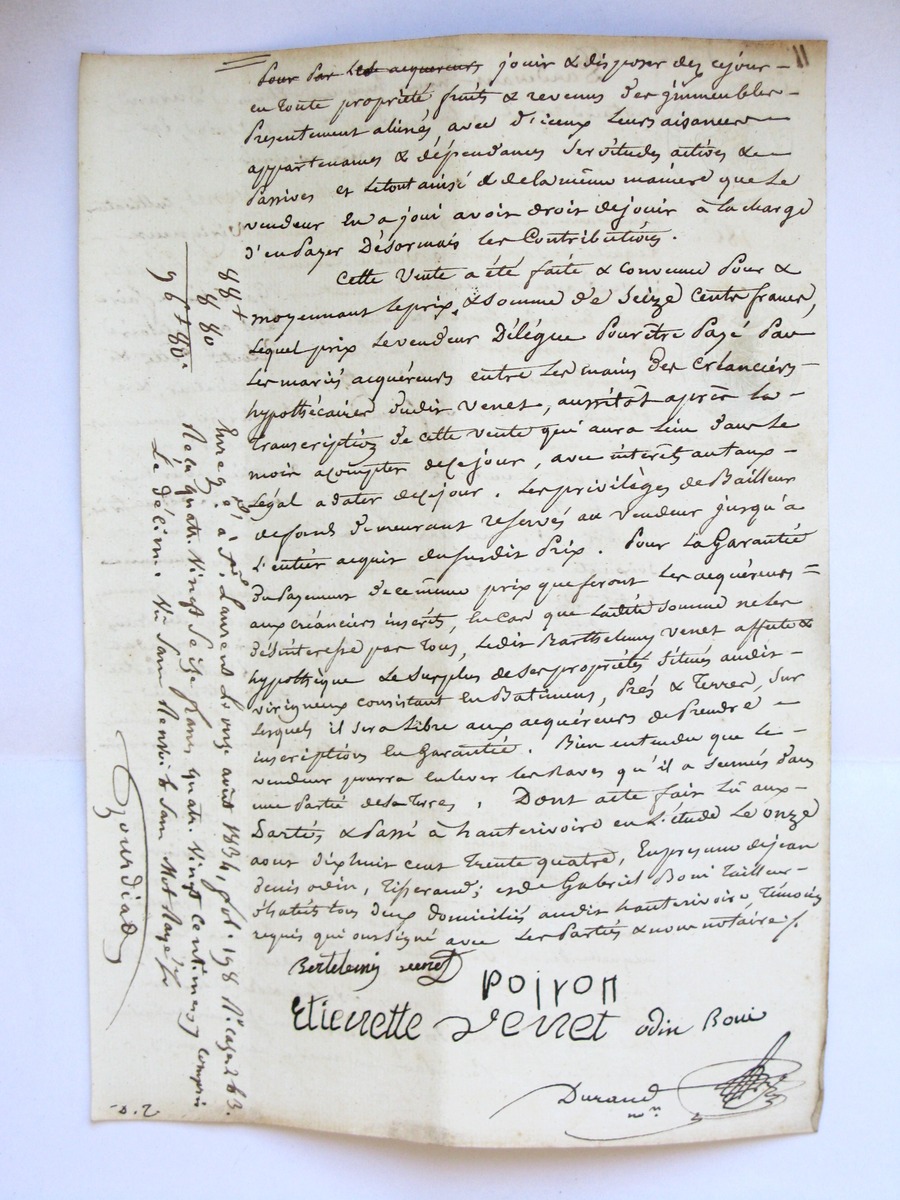 Pour par les acquereurs jouir & disposer dès ce jour
en toute propriété fruits & revenus des immeubles
Presentement aliénés, avec d'iceux leurs aisances
appartenances & dépendances servitudes actives &
Passives et le tout ainsi & de la même maniere que le
vendeur en a joui avoit droit de jouir à la charge
d'en Payer Désormais les Contributions.
Cette Vente a été faite & convenue Pour &
moyennant le prix & somme de Seize Cents francs,
Lequel prix le vendeur Délégue Pour être Payé Par
les mariés acquéreurs entre les mains des créanciers
hypothécaires dudit venet, aussitôt après la
transcription de cette vente qui aura lieu dans le
mois acompter de ce jour, avec interêts au taux
Légal a dater de ce jour. Les privilèges de Bailleur
de fond demeurant reservés au vendeur jusqu'à
l'entier acquit du susdit Prix. Pour la Garantie
du Payement de ce même prix que feront les acquéreurs
aux créanciers inscrits, en Cas que ladite somme ne les
désinteresse pas tous, ledit Barthelemy venet affecte &
hypothèque le surplus de ses propriétés situés audit
virigneux consistant en Batimens, Prés & Terres, sur
lesquels il sera libre aux acquéreurs de Prendre
inscription en Garantie. Bien entendu que le
vendeur pourra enlever les Raves qu'il a semés dans
une Partie de sa Terres. Dont acte fait lu aux
Parties & Passé à hauterivoire en l'étude le onze
aout dix huit cent trente quatre, En presence de jean
denis odin, Tisserand; et de Gabriel Boni Tailleur
d'habits tous deux domiciliés audit hauterivoire, Témoins
requis qui ont signé avec les Parties & nous notaire
Bertelemis venet
poiron
Etienette Venet odin Boni
Durand
nre
88 +
8 80
96 + 80
Enregé à St Laurent le onze août 1834, fol. 198 Re
Reçu quatre Vingt seize francs quatre Vingt centimes y compris
Le décime.
Gourdiat
11